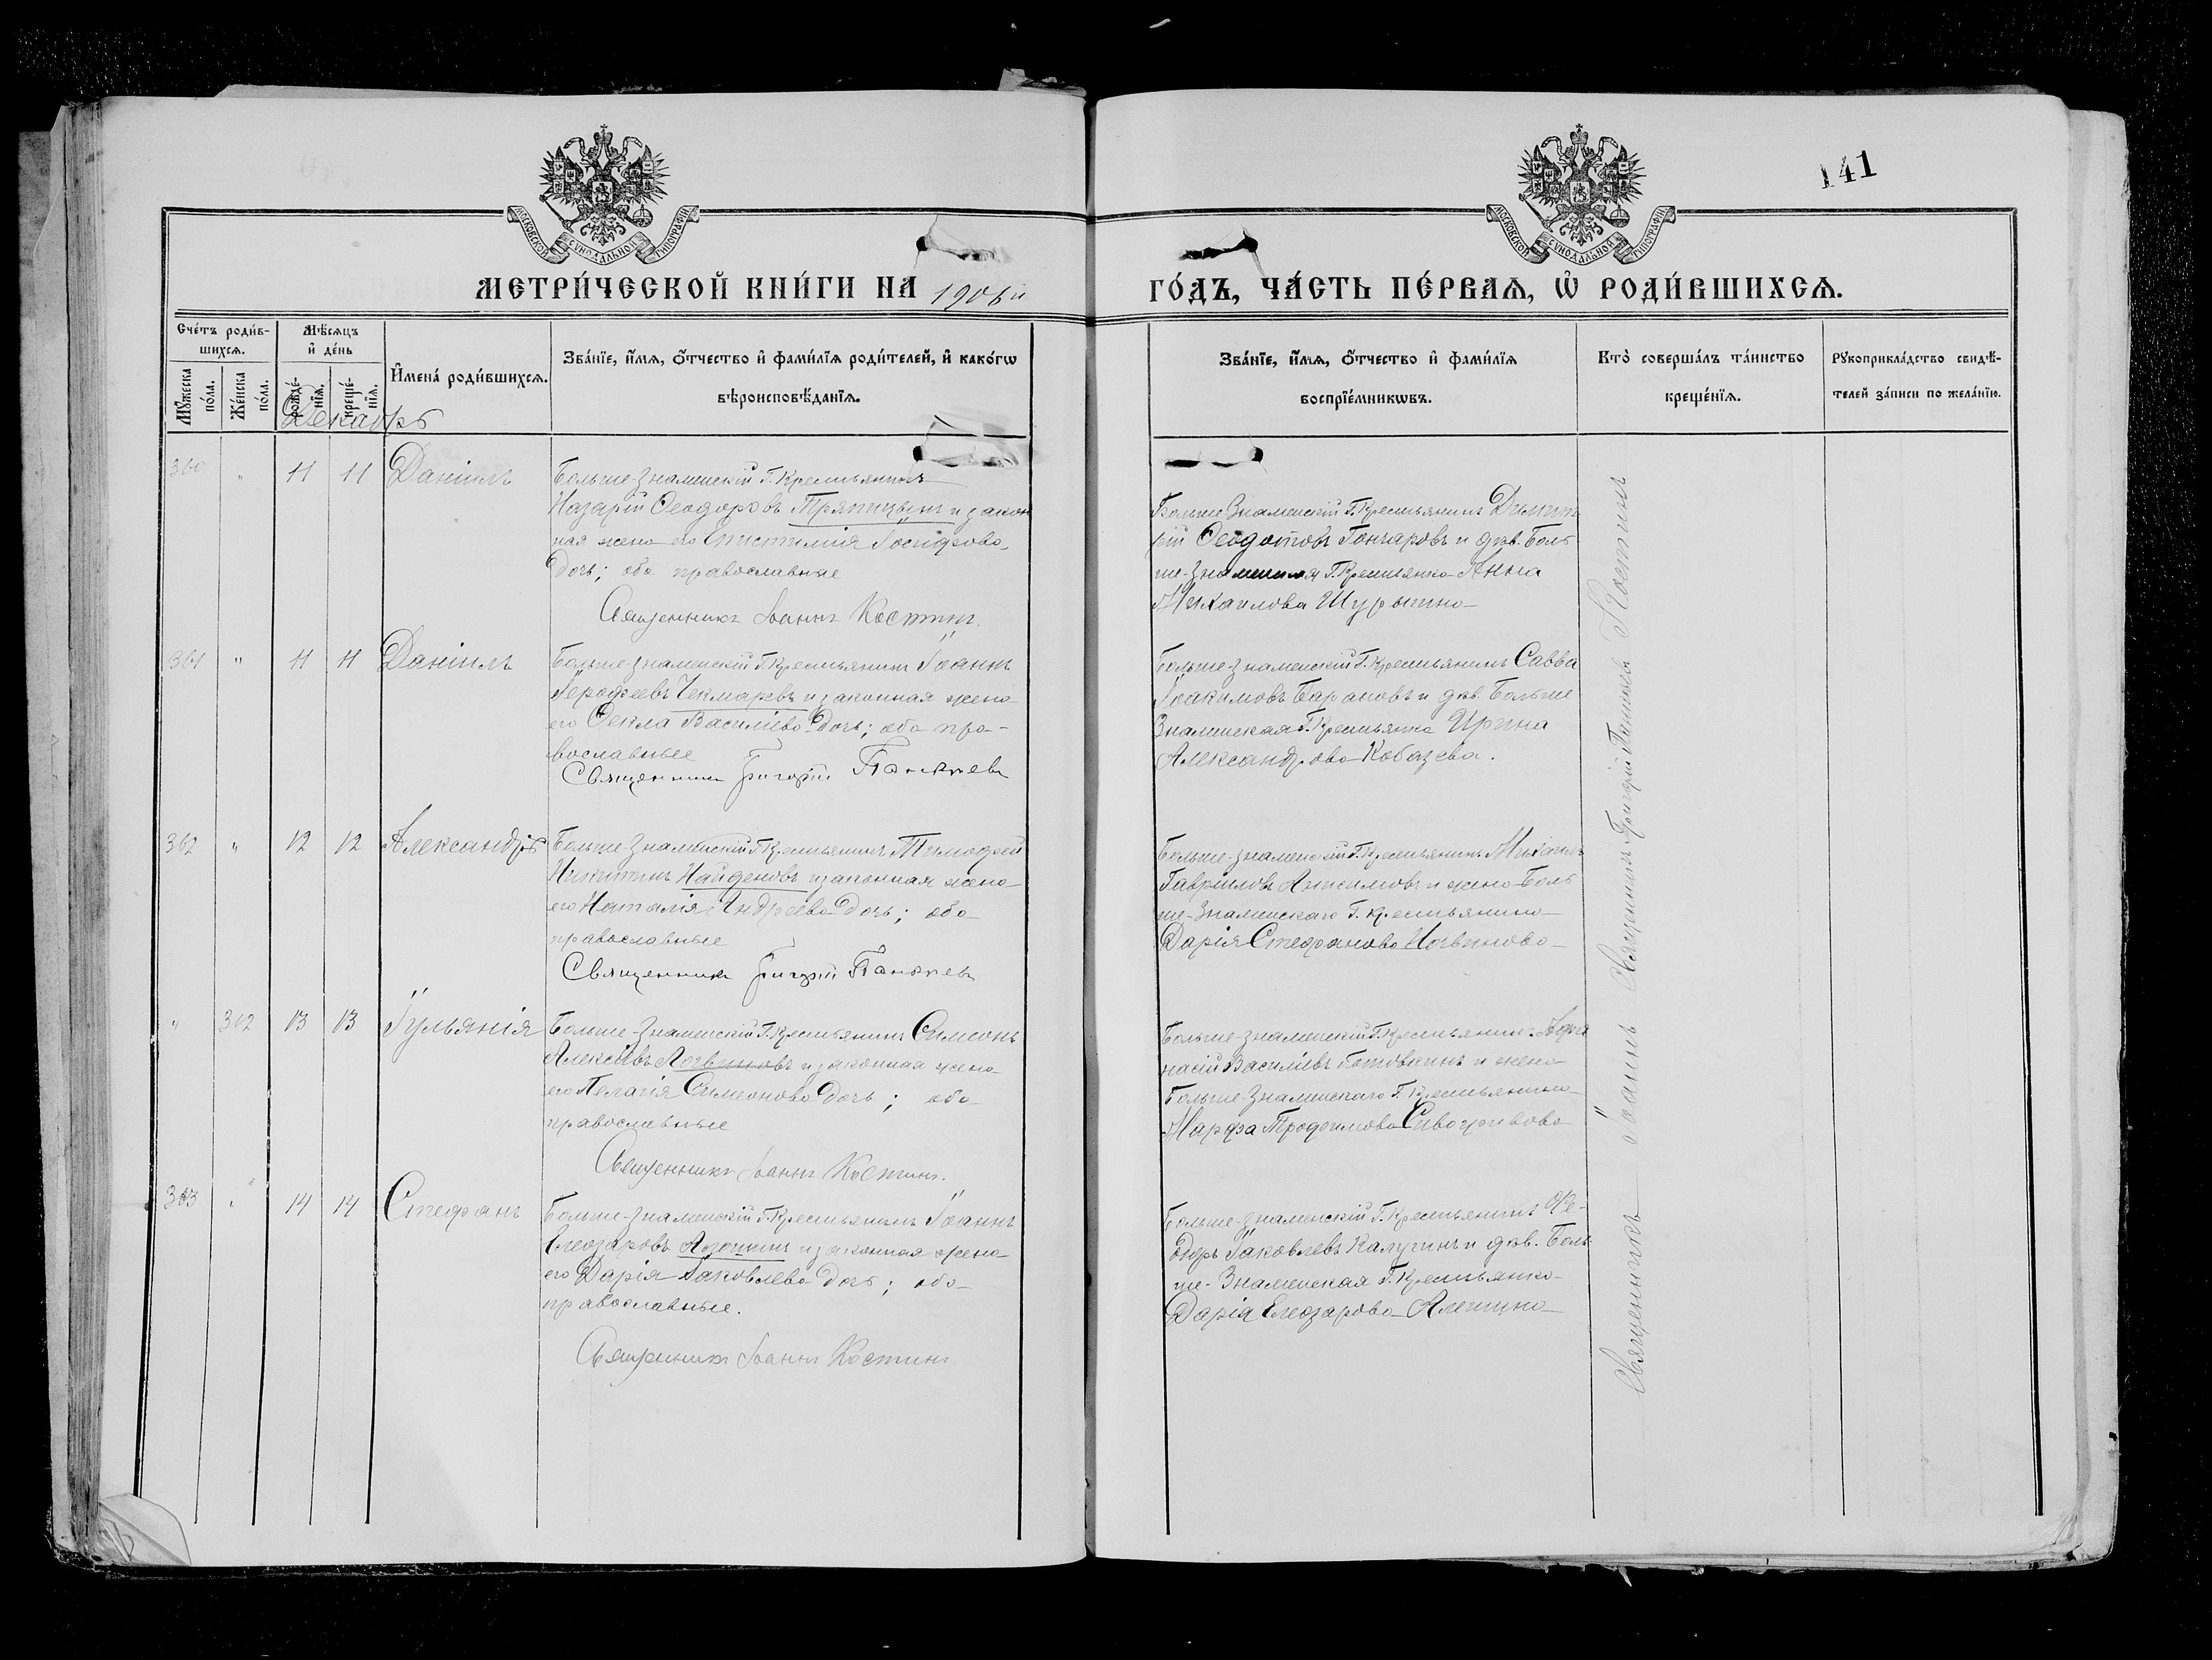 141
МОСКОВСКОЙ СѴНОДАЛЬНОЙ ТИПОГРАФІИ
МОСКОВСКОЙ СѴНОДАЛЬНОЙ ТИПОГРАФІИ
МЕТРИ́ЧЕСКОЙ КНИ́ГИ НА 1906 й
ГО́ДЪ, ЧА́СТЬ ПЕ́РВАѦ, Ѡ҆ РОДИ́ВШИХСѦ.
Сче́тъ роди́в-
шихсѧ.
Мꙋ́жеска по́ла.
Же́нска по́ла.
Мѣ́сѧцъ
и҆ де́нь
рожде́-
нїѧ.
креще́-
нїѧ.
И҆мена̀ роди́вшихсѧ.
Зва́нїе, и҆́мѧ, ѻ҆́тчество и҆ фами́лїѧ роди́телей, и҆ како́гѡ
вѣроисповѣ́данїѧ.
Зва́нїе, и҆́мѧ, ѻ҆́тчество и҆ фами́лїѧ
воспрїе́мникѡвъ.
Кто̀ соверша́лъ та́инство
креще́нїѧ.
Рꙋкоприкла́дство свидѣ́-
телей за́писи по жела́нїю.
Декабрь
360 " 11 11 Даніилъ
Больше-Знаменскій Г. Крестьянинъ
Назарій Ѳеодоровъ Тряпицынъ и закон
ная жена его Епистимія Іосифова
дочь; оба православные
Священникъ Іоаннъ Костинъ.
Больше Знаменскій Г. Крестьянинъ Димит
рій Ѳеодотовъ Гончаровъ и дѣв. Боль
ше-Знаменская Г. Крестьянка Анна
Михаилова Шурыгина
361 " 11 11 Даніилъ
Больше-Знаменскій Г. Крестьянинъ Іоаннъ
Іерофеевъ Чекмаревъ и законная жена
его Ѳекла Василіева дочь; оба пра-
вославные
Священникъ Григорій
Больше-Знаменскій Г. Крестьянинъ Савва
Іоакимовъ Барановъ и дѣв. Больше
Знаменская Г. Крестьянка Ирина
Александрова Кобазева.
362 " 12 12 Александръ
Больше-Знаменскій Г. Крестьянинъ Тимофей
Никитинъ Найденовъ и законная жена
его Наталія Андреева дочь; оба
православные
Священникъ Григорій
Больше-Знаменскій Г. Крестьянинъ Михаилъ
Гавріиловъ Анисимовъ и жена Боль
ше-Знаменскаго Г. Крестьянина
Дарія Стефанова Логвинова
" 302 13 13 Іуліанія
Больше-Знаменскій Г. Крестьянинъ Симеонъ
Алексіевъ Логвиновъ и законная жена
его Пелагія Симеонова дочь; оба
православные
Священникъ Іоаннъ Костинъ.
Больше-Знаменскій Г. Крестьянинъ Афа
насій Василіевъ и жена
Больше-Знаменскаго Г. Крестьянина
Марфа Трофимова Сивогривова
363 " 14 14 Стефанъ
Больше-Знаменскій Г. Крестьянинъ Іоаннъ
Елеазаровъ и законная жена
его Дарія Іаковлева дочь; оба
православные.
Священникъ Іоаннъ Костинъ
Больше-Знаменскій Г. Крестьянинъ Ѳе-
одоръ Іаковлевъ Калугинъ и дѣв. Боль
ше-Знаменская Г. Крестьянка
Дарія Елеазарова Алешина
Священникъ Іоаннъ Костинъ
Священникъ Григорій